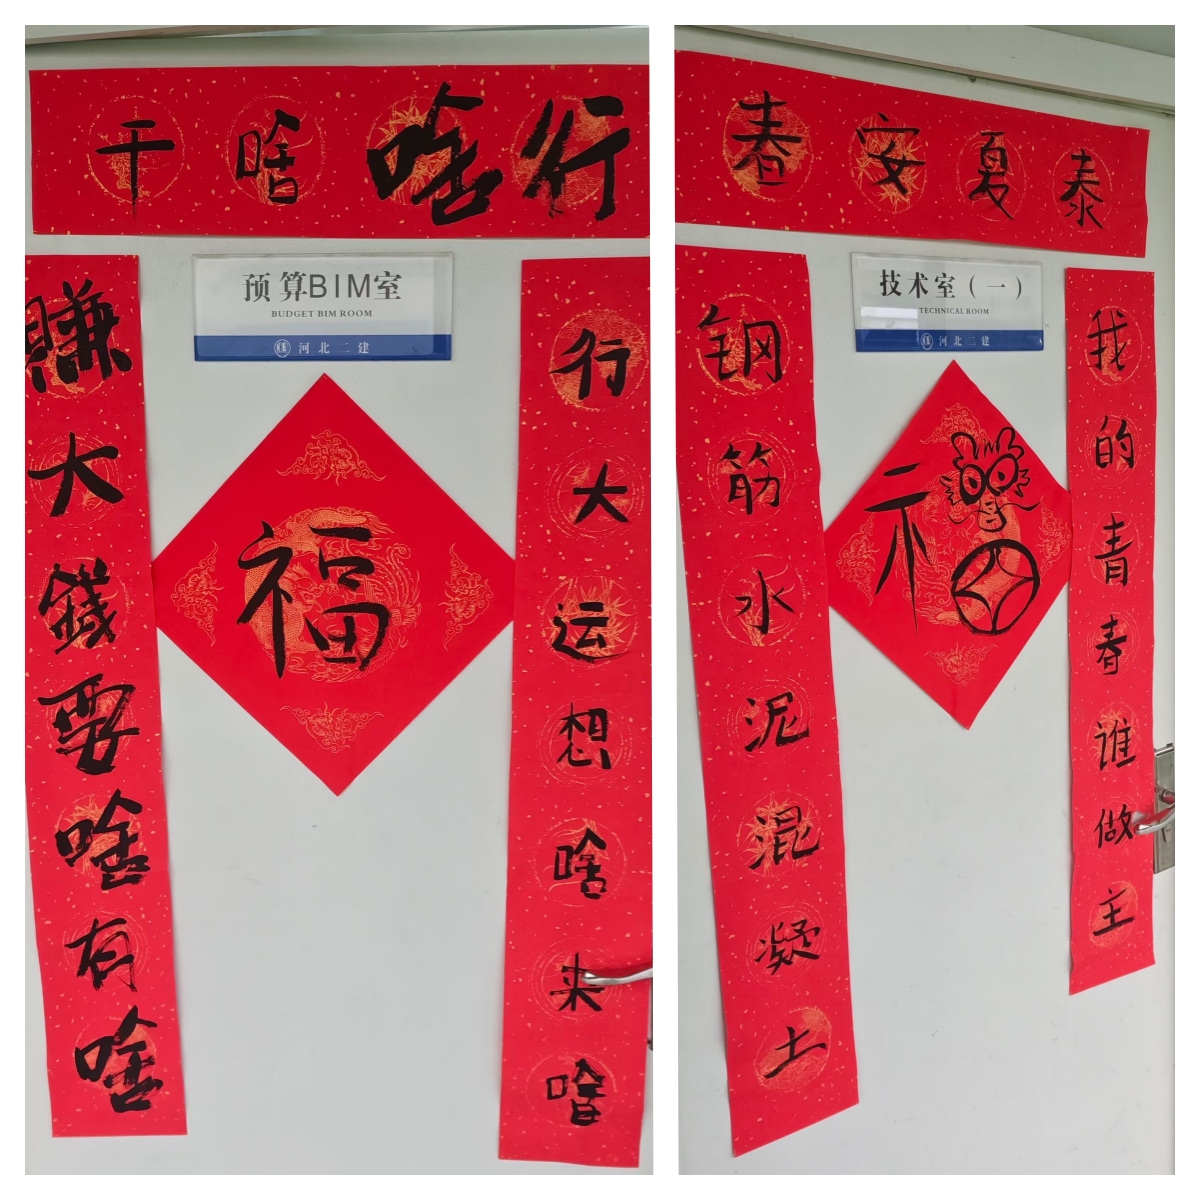 干啥啥行
賺大錢要啥有啥
预算BIM室
BUDGET BIM ROOM
河北二建
福
行大运想啥来啥
春安夏泰
钢筋水泥混凝土
技术室（一）
TECHNICAL ROOM
河北二建
福
我的青春谁做主